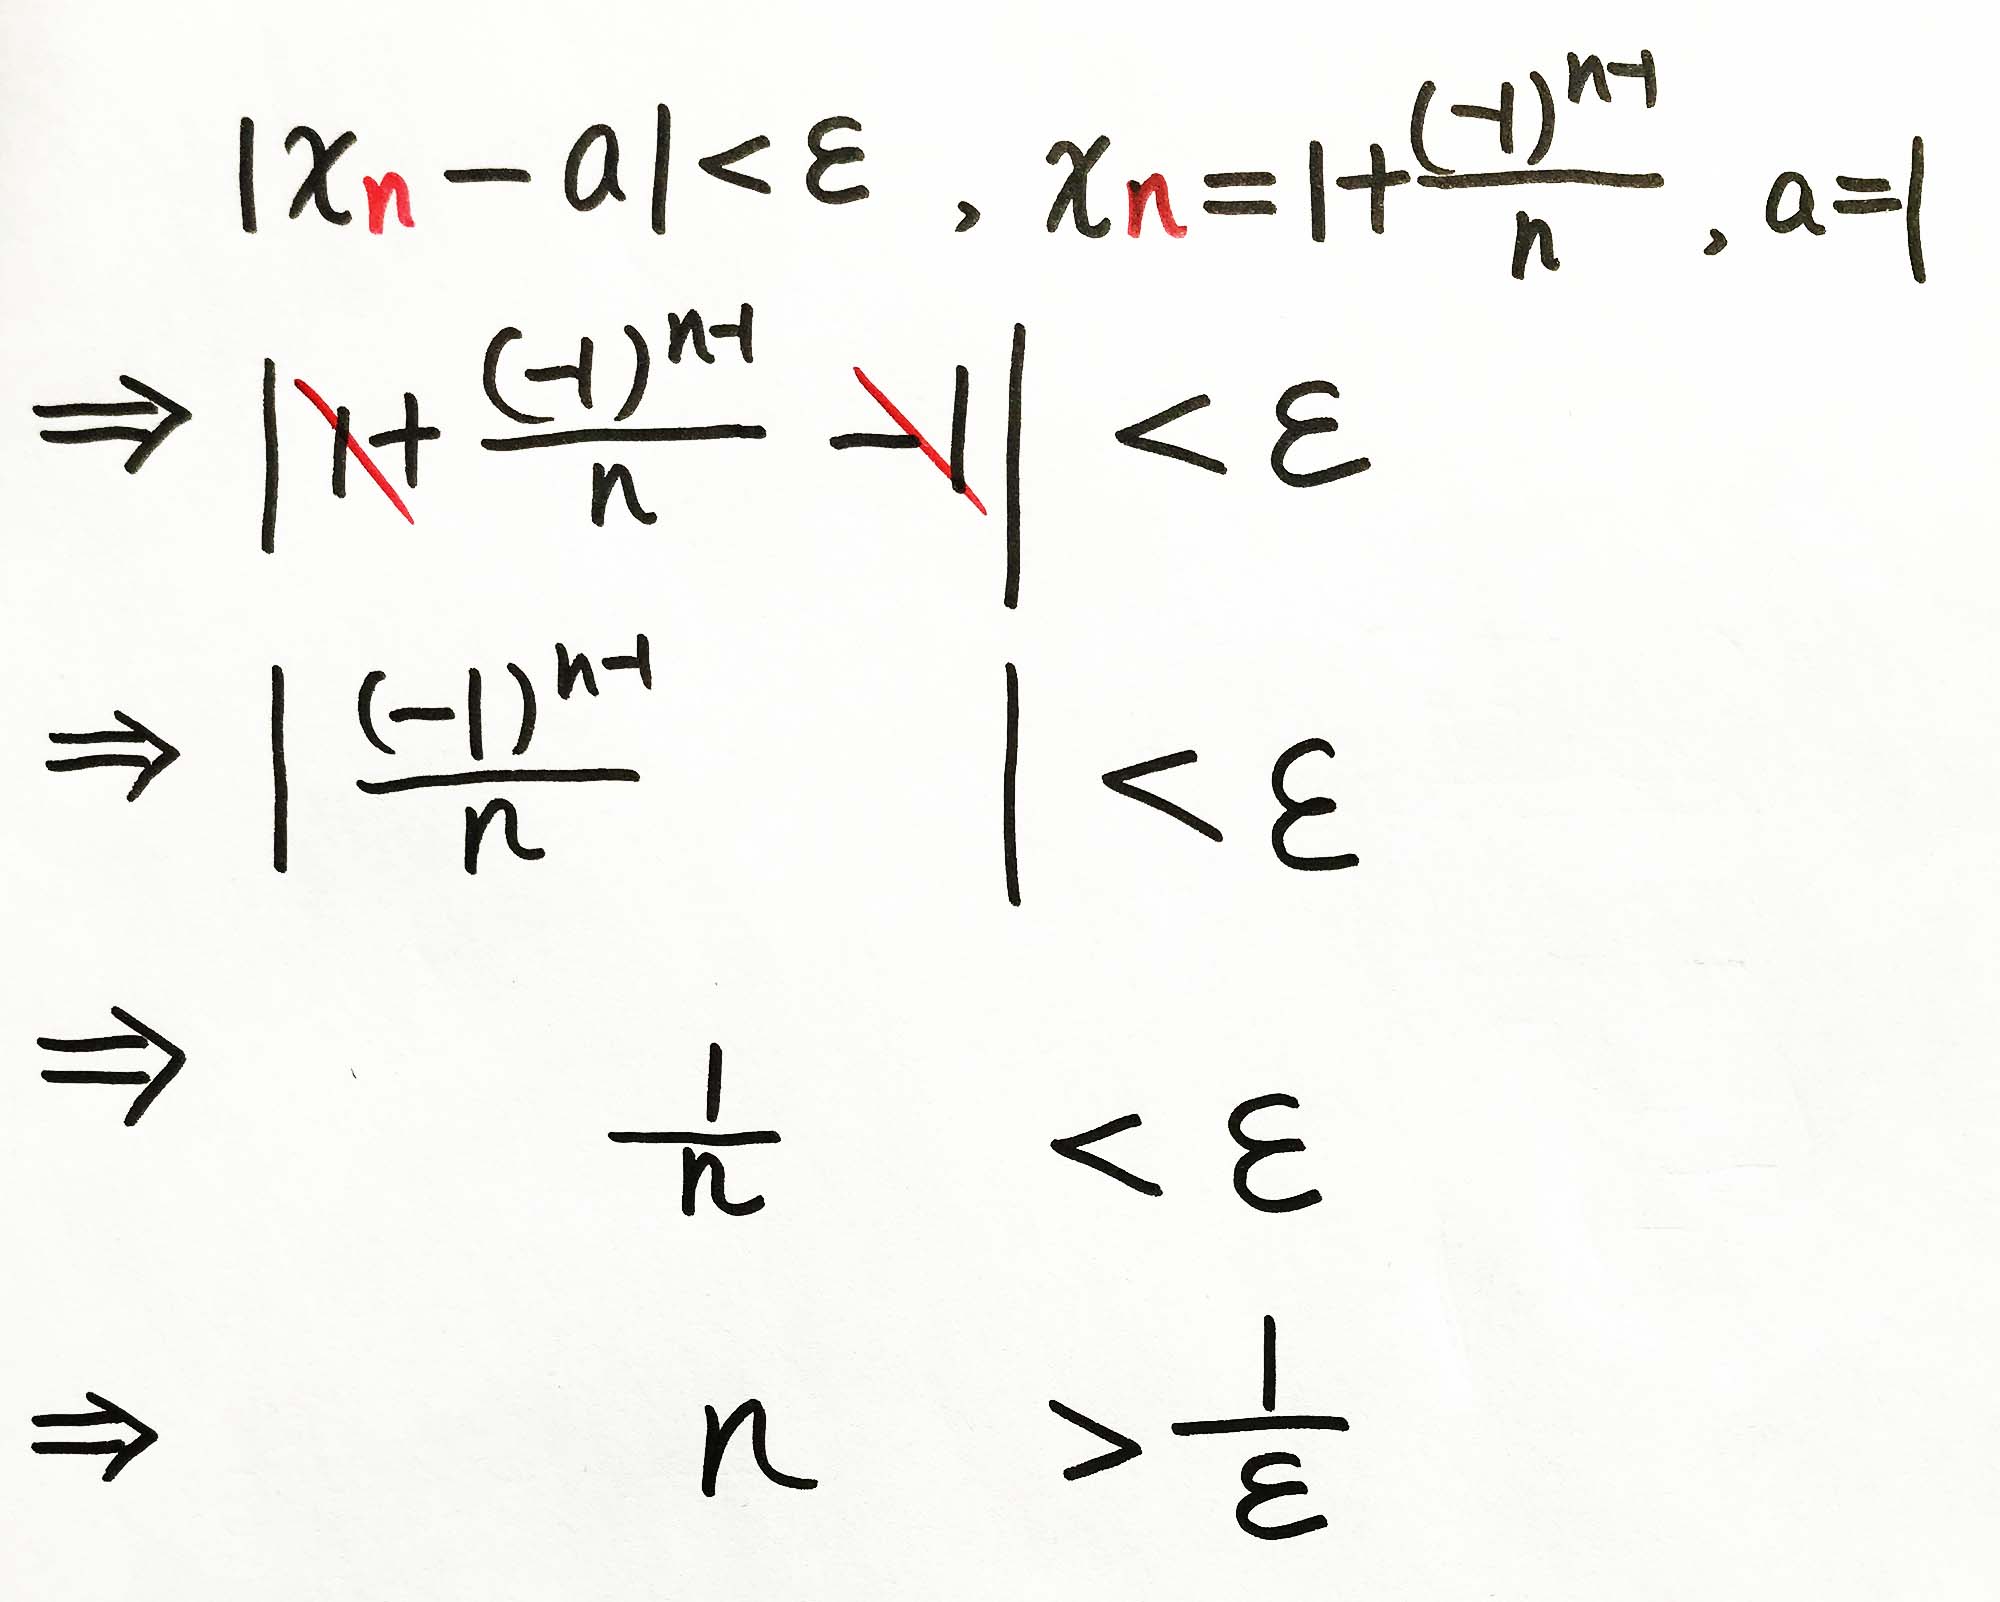 |xn - a| < ε , xn = 1 + (-1)^(n-1)/n , a = 1
⇒ |1 + (-1)^(n-1)/n - 1| < ε
⇒ |(-1)^(n-1)/n| < ε
⇒ 1/n < ε
⇒ n > 1/ε